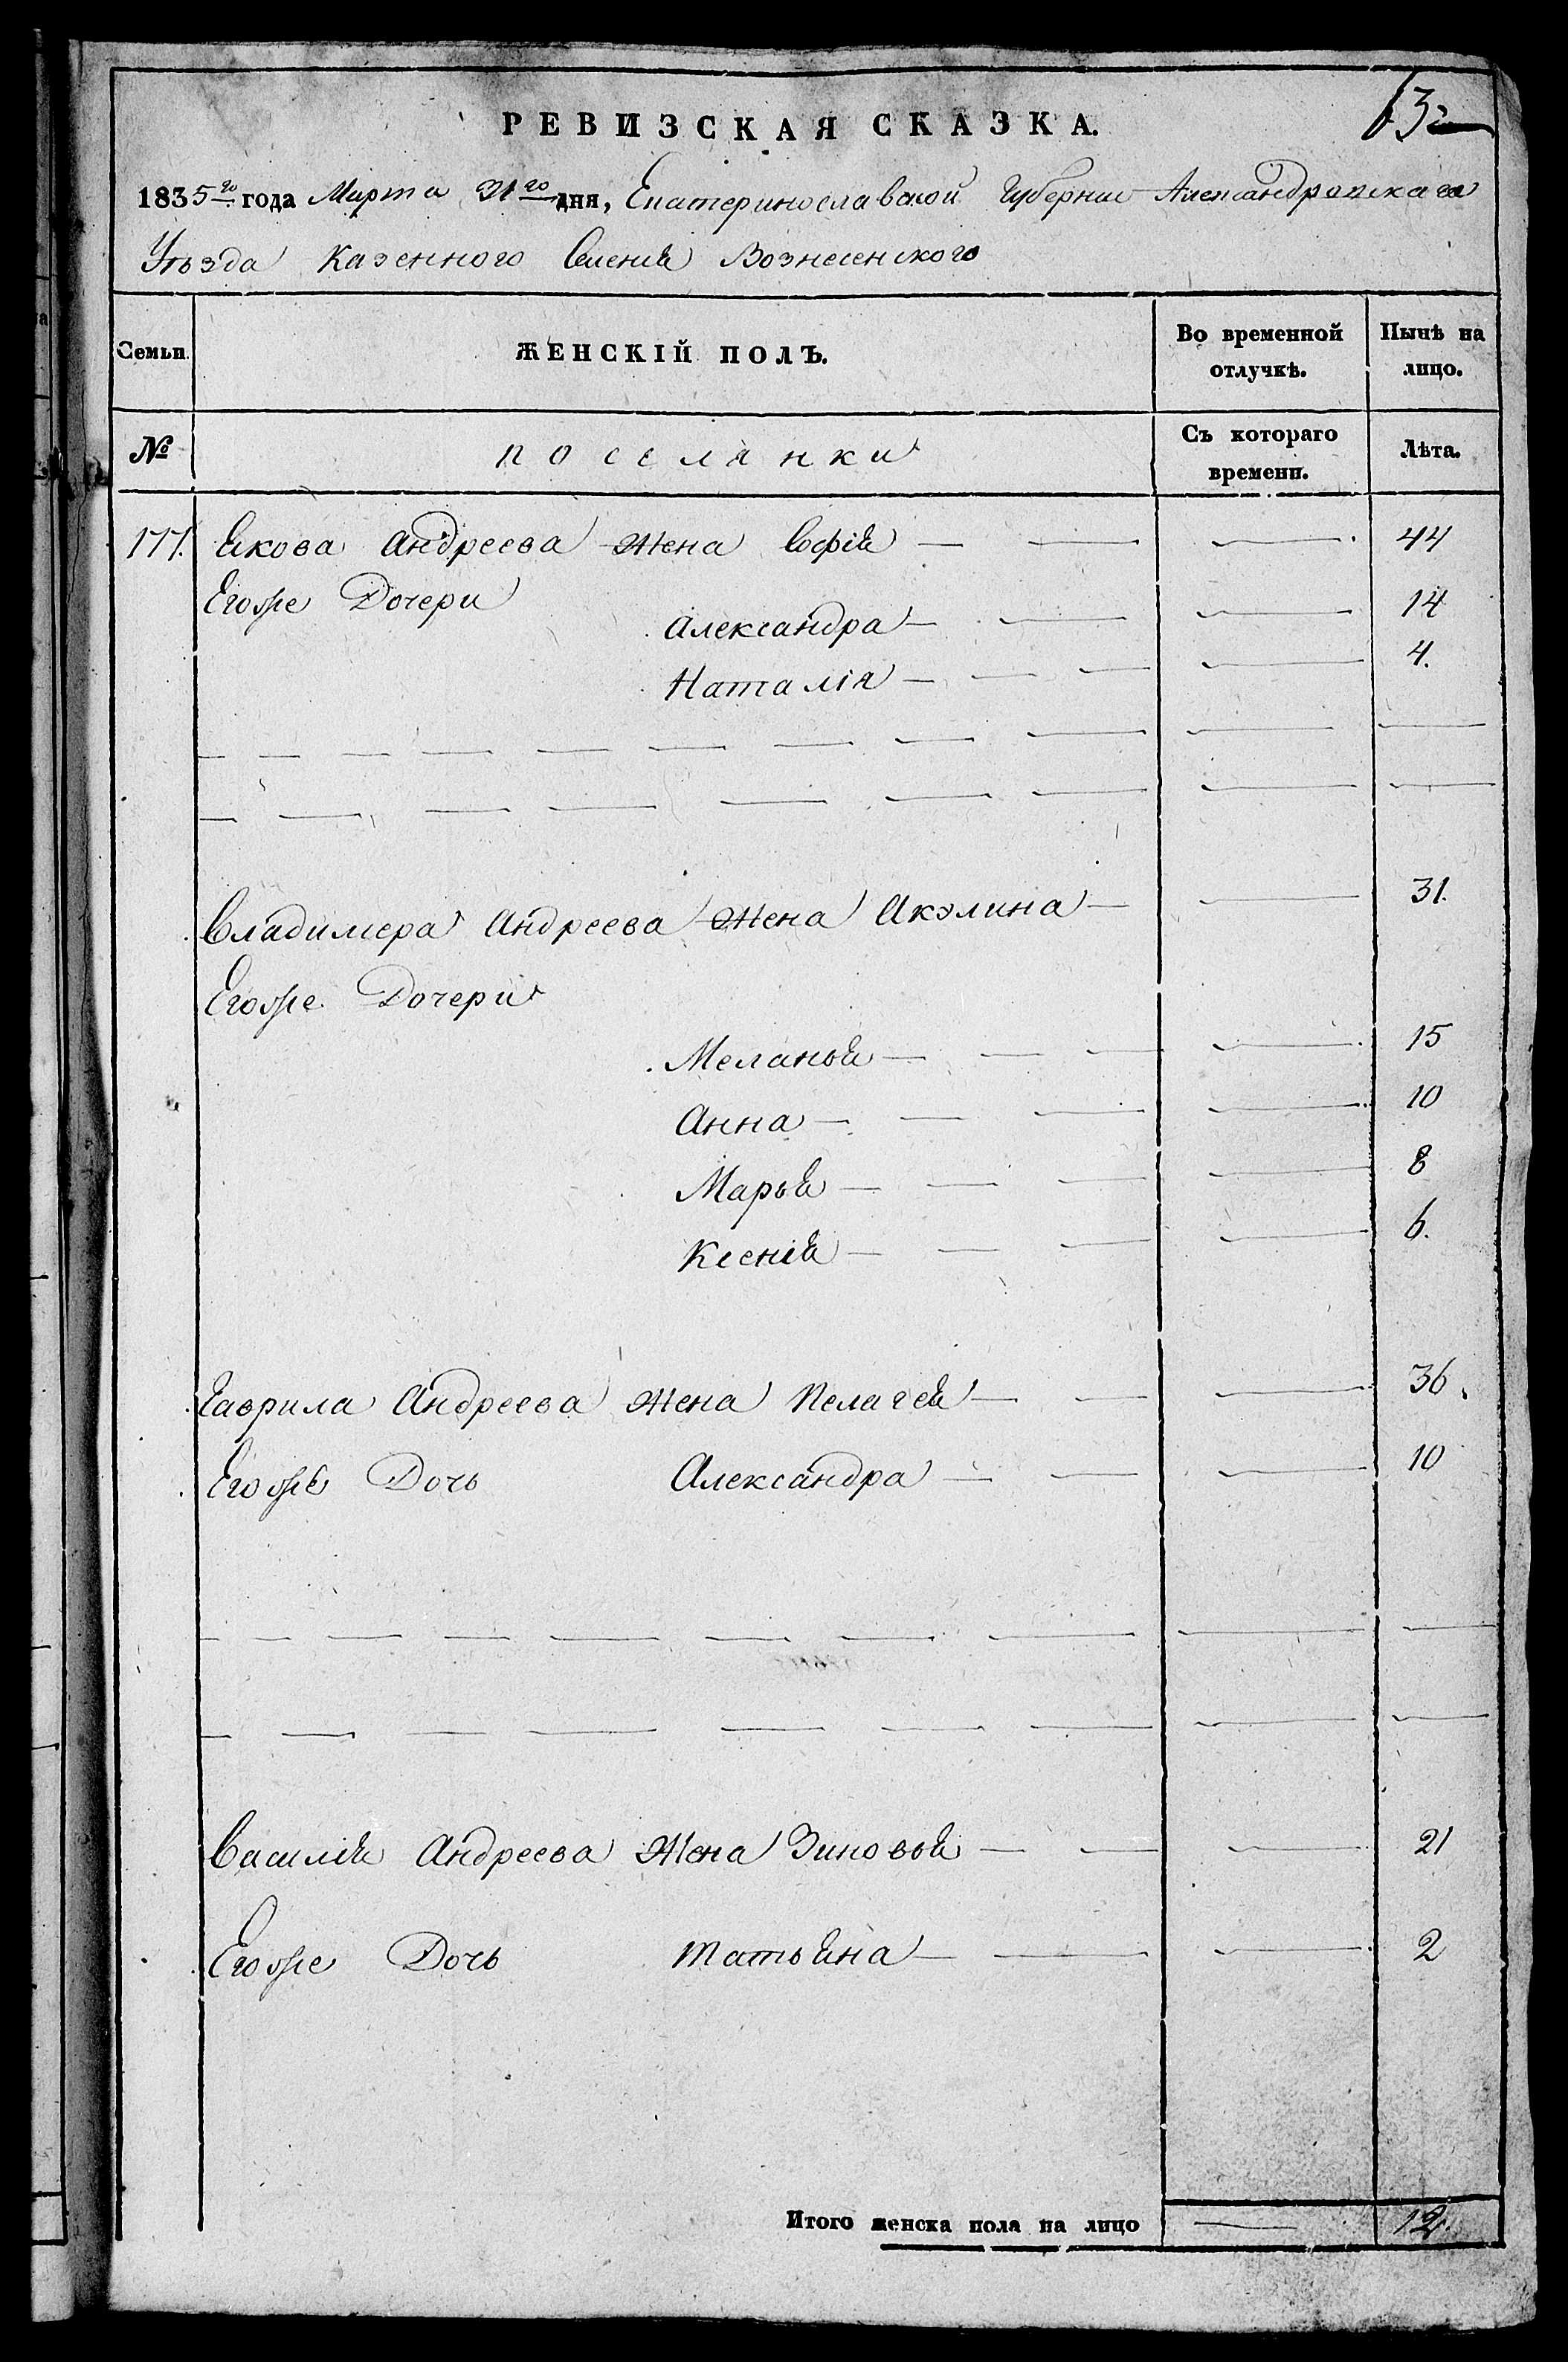 632
РЕВИЗСКАЯ СКАЗКА.
1835го года Марта 31го дня, Екатеринославской Губернии Александровскаго
Уѣзда Казенного Селения Вознесенского
Семьи. ЖЕНСКІЙ ПОЛЪ. Во временной отлучкѣ. Нынѣ на лицо.
№ поселянки Съ котораго времени. Лѣта.
177. Якова Андреева Жена Софія — — — 44
Егоже Дочери
Александра — — — 14
Наталія — — — — 4.
Владимера Андреева Жена Акэлина — — 31.
Егоже Дочери
Меланья — — — — 15
Анна — — — — 10
Марья — — — — 8
Ксенія — — — — 6.
Гаврила Андреева Жена Пелагея — — — 36.
Егоже Дочь Александра — — — 10
Василія Андреева Жена Зиновья — — — 21
Егоже Дочь Татьяна — — — 2
Итого женска пола на лицо — 12.